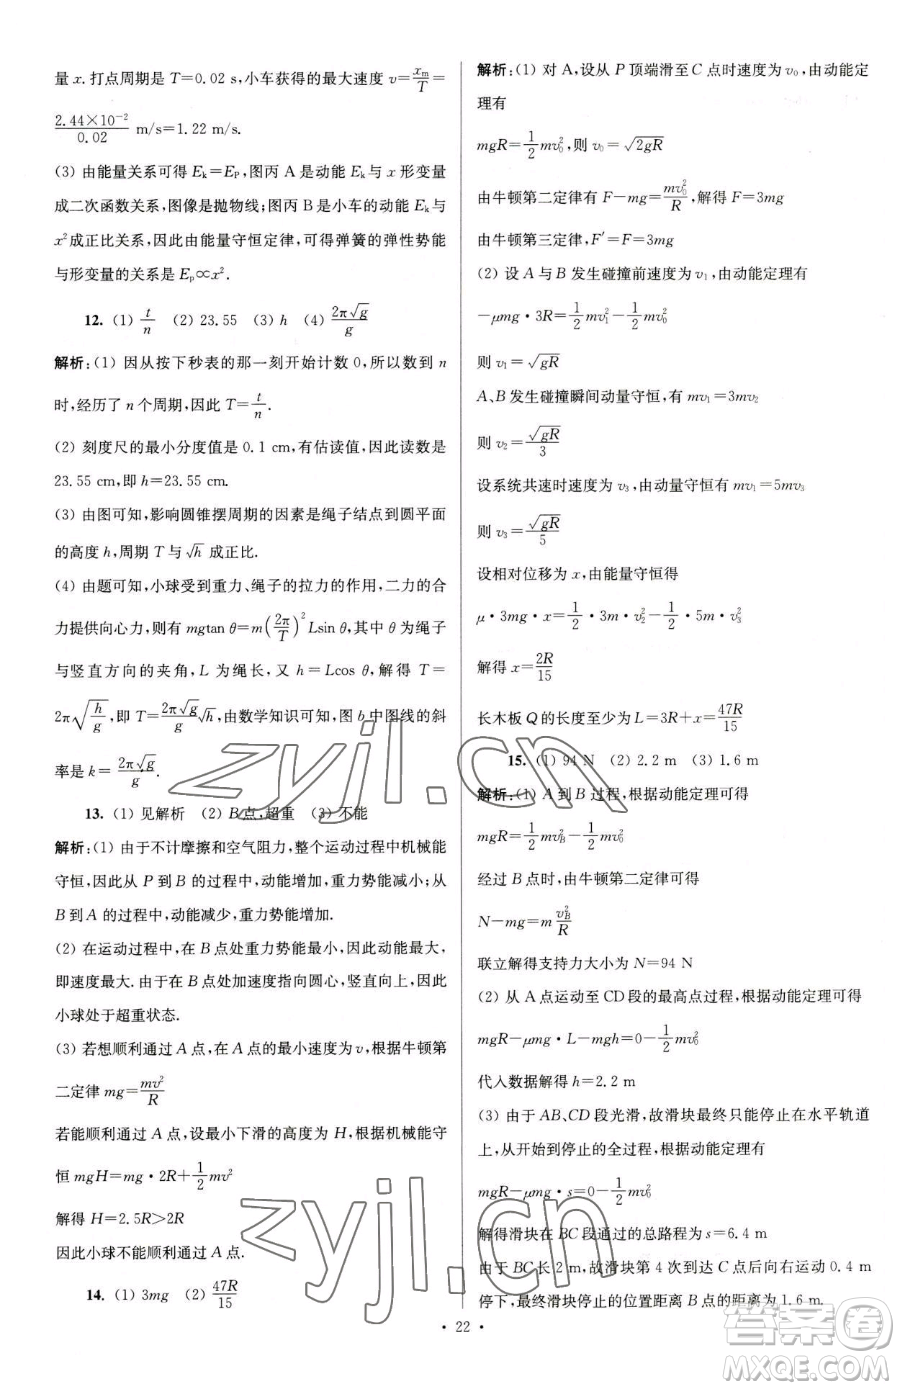 量 x. 打点周期是 T=0.02 s, 小车获得的最大速度 v=\frac{x_m}{T}=
\frac{2.44×10^{-2}}{0.02} m/s=1.22 m/s.
(3) 由能量关系可得 E_k=E_P, 图丙 A 是动能 E_k 与 x 形变量
成二次函数关系, 图像是抛物线; 图丙 B 是小车的动能 E_k 与
x^2 成正比关系, 因此由能量守恒定律, 可得弹簧的弹性势能
与形变量的关系是 E_p∝x^2.
12. (1) \frac{t}{n} (2) 23.55 (3) h (4) \frac{2π\sqrt{g}}{g}
解析: (1) 因从按下秒表的那一刻开始计数 0, 所以数到 n
时, 经历了 n 个周期, 因此 T=\frac{t}{n}.
(2) 刻度尺的最小分度值是 0.1 cm, 有估读值, 因此读数是
23.55 cm, 即 h=23.55 cm.
(3) 由图可知, 影响圆锥摆周期的因素是绳子结点到圆平面
的高度 h, 周期 T 与 \sqrt{h} 成正比.
(4) 由题可知, 小球受到重力、绳子的拉力的作用, 二力的合
力提供向心力, 则有 mgtan θ=m(\frac{2π}{T})^2 Lsin θ, 其中 θ 为绳子
与竖直方向的夹角, L 为绳长, 又 h=Lcos θ, 解得 T=
2π\sqrt{\frac{h}{g}}, 即 T=\frac{2π\sqrt{g}}{g}\sqrt{h}, 由数学知识可知, 图 b 中图线的斜
率是 k=\frac{2π\sqrt{g}}{g}.
13. (1) 见解析 (2) B 点, 超重 (3) 不能
解析: (1) 由于不计摩擦和空气阻力, 整个运动过程中机械能
守恒, 因此从 P 到 B 的过程中, 动能增加, 重力势能减小; 从
B 到 A 的过程中, 动能减少, 重力势能增加.
(2) 在运动过程中, 在 B 点处重力势能最小, 因此动能最大,
即速度最大. 由于在 B 点处加速度指向圆心, 竖直向上, 因此
小球处于超重状态.
(3) 若想顺利通过 A 点, 在 A 点的最小速度为 v, 根据牛顿第
二定律 mg=\frac{mv^2}{R}
若能顺利通过 A 点, 设最小下滑的高度为 H, 根据机械能守
恒 mgH=mg·2R+\frac{1}{2}mv^2
解得 H=2.5R>2R
因此小球不能顺利通过 A 点.
14. (1) 3mg (2) \frac{47R}{15}
解析: (1) 对 A, 设从 P 顶端滑至 C 点时速度为 v_0, 由动能定
理有
mgR=\frac{1}{2}mv_0^2, 则 v_0=\sqrt{2gR}
由牛顿第二定律有 F-mg=\frac{mv_0^2}{R}, 解得 F=3mg
由牛顿第三定律, F'=F=3mg
(2) 设 A 与 B 发生碰撞前速度为 v_1, 由动能定理有
-μmg·3R=\frac{1}{2}mv_1^2-\frac{1}{2}mv_0^2
则 v_1=\sqrt{gR}
A、B 发生碰撞瞬间动量守恒, 有 mv_1=3mv_2
则 v_2=\frac{\sqrt{gR}}{3}
设系统共速时速度为 v_3, 由动量守恒有 mv_1=5mv_3
则 v_3=\frac{\sqrt{gR}}{5}
设相对位移为 x, 由能量守恒得
μ·3mg·x=\frac{1}{2}·3m·v_2^2-\frac{1}{2}·5m·v_3^2
解得 x=\frac{2R}{15}
长木板 Q 的长度至少为 L=3R+x=\frac{47R}{15}
15. (1) 94 N (2) 2.2 m (3) 1.6 m
解析: (1) A 到 B 过程, 根据动能定理可得
mgR=\frac{1}{2}mv_B^2-\frac{1}{2}mv_0^2
经过 B 点时, 由牛顿第二定律可得
N-mg=m\frac{v_B^2}{R}
联立解得支持力大小为 N=94 N
(2) 从 A 点运动至 CD 段的最高点过程, 根据动能定理可得
mgR-μmg·L-mgh=0-\frac{1}{2}mv_0^2
代入数据解得 h=2.2 m
(3) 由于 AB、CD 段光滑, 故滑块最终只能停止在水平轨道
上, 从开始到停止的全过程, 根据动能定理有
mgR-μmg·s=0-\frac{1}{2}mv_0^2
解得滑块在 BC 段通过的总路程为 s=6.4 m
由于 BC 长 2 m, 故滑块第 4 次到达 C 点后向右运动 0.4 m
停下, 最终滑块停止的位置距离 B 点的距离为 1.6 m.
· 22 ·
zyjl.cn
zyjl.cn
答案圈
MXQE.COM